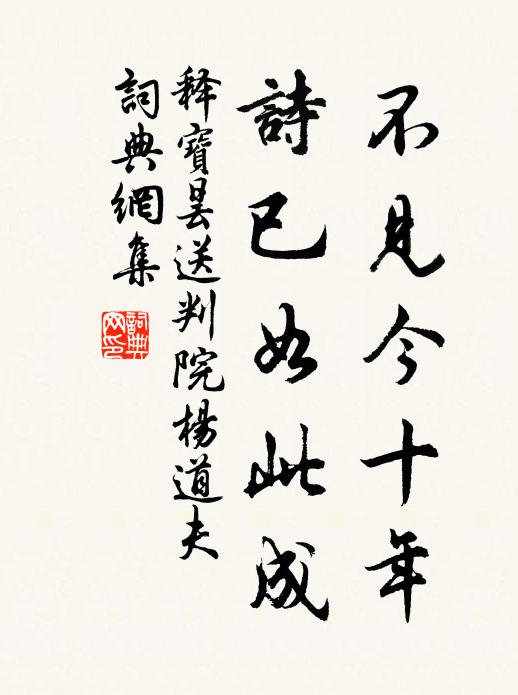 不見今十年
詩已如此成
釋寶曇送判院楊道夫
詞典網集
詞典網印